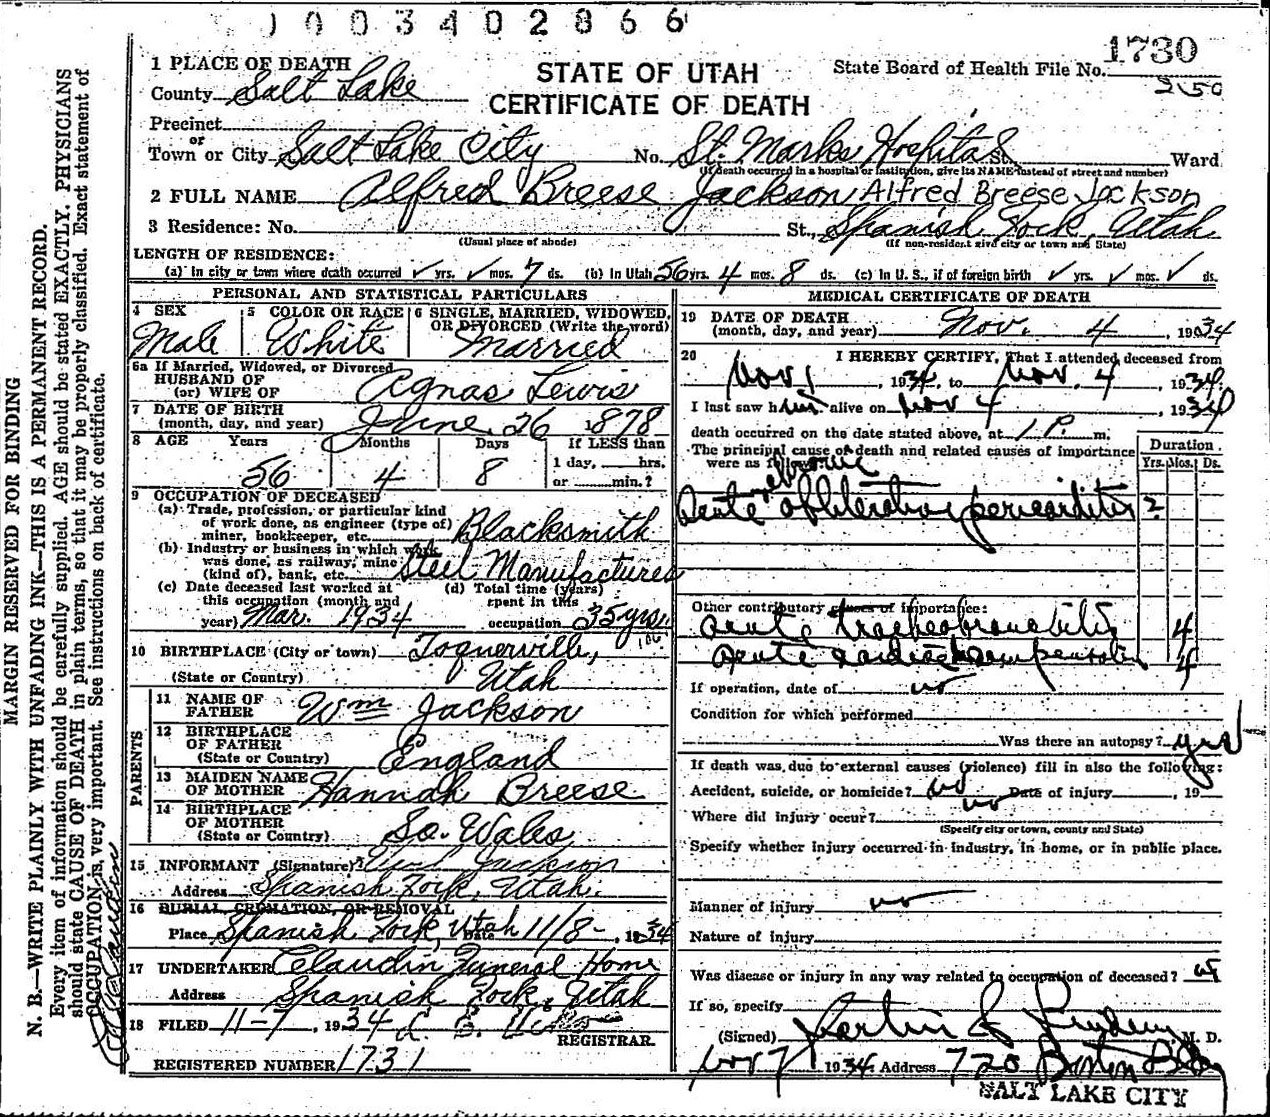 1003402866
1730
2150
1 PLACE OF DEATH
STATE OF UTAH
CERTIFICATE OF DEATH
State Board of Health File No.
County Salt Lake
Precinct
or
Town or City Salt Lake City No. St. Marks Hospital St. Ward
(If death occurred in a hospital or institution, give its NAME instead of street and number)
2 FULL NAME Alfred Breese Jackson Alfred Breese Jackson
3 Residence: No. St., Spanish Fork, Utah
(Usual place of abode) (If non-resident give city or town and State)
LENGTH OF RESIDENCE:
(a) In city or town where death occurred ✓ yrs. ✓ mos. 7 ds. (b) In Utah 56 yrs. 4 mos. 8 ds. (c) In U. S., if of foreign birth ✓ yrs. ✓ mos. ✓ ds.
PERSONAL AND STATISTICAL PARTICULARS
4 SEX Male
5 COLOR OR RACE White
6 SINGLE, MARRIED, WIDOWED, OR DIVORCED (Write the word) Married
6a If Married, Widowed, or Divorced
HUSBAND OF
(or) WIFE OF Agnas Lewis
7 DATE OF BIRTH
(month, day, and year) June 26 1878
8 AGE Years Months Days If LESS than
56 4 8 1 day, hrs.
or min.?
9 OCCUPATION OF DECEASED
(a) Trade, profession, or particular kind
of work done, as engineer (type of)
miner, bookkeeper, etc. Blacksmith
(b) Industry or business in which work
was done, as railway, mine
(kind of), bank, etc. Steel Manufactures
(c) Date deceased last worked at
this occupation (month and
year) Mar. 1934
(d) Total time (years)
spent in this
occupation 35 yrs
10 BIRTHPLACE (City or town) Toquerville,
(State or Country) Utah
PARENTS
11 NAME OF
FATHER Wm Jackson
12 BIRTHPLACE
OF FATHER
(State or Country) England
13 MAIDEN NAME
OF MOTHER Hannah Breese
14 BIRTHPLACE
OF MOTHER
(State or Country) So. Wales
15 INFORMANT (Signature) Jackson
Address Spanish Fork, Utah.
16 BURIAL, CREMATION, OR REMOVAL
Place Spanish Fork, Utah Date 11/8-, 1934
17 UNDERTAKER Claudin Funeral Home
Address Spanish Fork, Utah
18 FILED 11-7, 1934
REGISTRAR.
REGISTERED NUMBER 1731
MEDICAL CERTIFICATE OF DEATH
19 DATE OF DEATH
(month, day, and year) Nov. 4 1934
20 I HEREBY CERTIFY, That I attended deceased from
Nov 1, 1934, to Nov. 4, 1934.
I last saw him alive on Nov 4, 1934
death occurred on the date stated above, at 1 P. m.
The principal cause of death and related causes of importance
were as follows:
Duration
Yrs. Mos. Ds.
Acute obliterative pericarditis ?
Other contributory causes of importance:
acute tracheobronchitis 4
acute cardiac decompensation 4
If operation, date of no
Condition for which performed
Was there an autopsy? yes
If death was due to external causes (violence) fill in also the following:
Accident, suicide, or homicide? no Date of injury , 19
Where did injury occur? no
(Specify city or town, county and State)
Specify whether injury occurred in industry, in home, or in public place.
Manner of injury no
Nature of injury
Was disease or injury in any way related to occupation of deceased?
If so, specify
(Signed) M. D.
Nov 7 1934 Address 720 Boston Bldg
SALT LAKE CITY
MARGIN RESERVED FOR BINDING
N. B.—WRITE PLAINLY WITH UNFADING INK—THIS IS A PERMANENT RECORD.
Every item of information should be carefully supplied. AGE should be stated EXACTLY. PHYSICIANS
should state CAUSE OF DEATH in plain terms, so that it may be properly classified. Exact statement of
OCCUPATION is very important. See instructions on back of certificate.